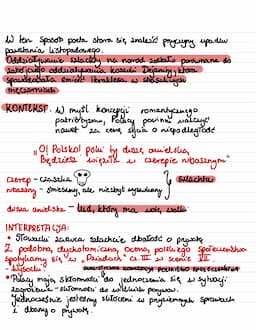 W ten sposób poeta stara się znaleźć przyczyny upadku
powstania listopadowego.
Oddziaływanie szlachty na naród zostało porównane do
zatrutego oddziaływania koszuli Dejaniry, która
spowodowała śmierć Heraklesa w straszliwych
męczarniach.
KONTEKST: W myśl koncepcji romantycznego
patriotyzmu, Polacy powinni walczyć
nawet za cenę życia o niepodległość
"O! Polsko! póki ty duszę anielską,
Będziesz więziła w czerepie rubasznym"
czerep - czaszka
rubaszny - śmieszny, ale niezbyt wyszukany
szlachta
dusza anielska - lud, który ma wolę walki
INTERPRETACJA:
• Słowacki zarzuca szlachcie dbałość o prywatę
Z podobną, dychotomiczną, oceną, polskiego społeczeństwa
spotykamy się w „Dziadach" cz. III w scenie VII.
- Wysocki:
• Polacy mają skłonność do jednoczenia się w sytuacji
zagrożenia - skłonność do wielkich porywów.
Jednocześnie jesteśmy skłóceni w przyziemnych sprawach
i dbamy o prywatę.